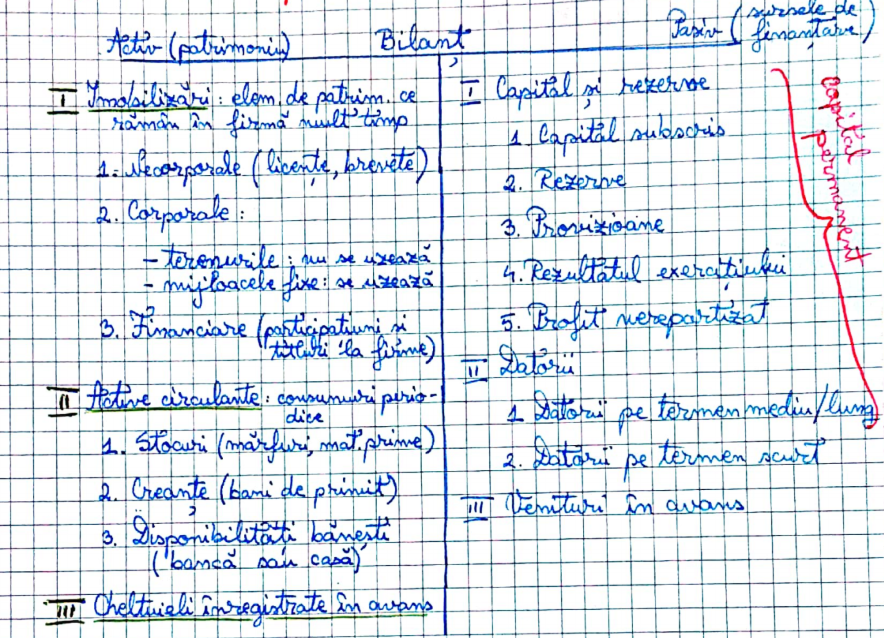 Activ (patrimoniu)
Bilanț
Pasiv (sursele de
finanțare)
I Imobilizări: elem. de patrim. ce
rămân în firmă mult timp
1. Necorporale (licențe, brevete)
2. Corporale:
- terenurile: nu se uzează
- mijloacele fixe: se uzează
3. Financiare (participatiuni si
titluri la firme)
II Active circulante: consumuri perio-
dice
1. Stocuri (mărfuri, mat. prime)
2. Creanțe (bani de primit)
3. Disponibilități bănești
(bancă sau casă)
III Cheltuieli înregistrate în avans
I Capital și rezerve
1 Capital subscris
2. Rezerve
3. Provizioane
4. Rezultatul exercițiului
5. Profit nerepartizat
II Datorii
1 Datorii pe termen mediu/lung
2. Datorii pe termen scurt
III Venituri în avans
capital
permanent